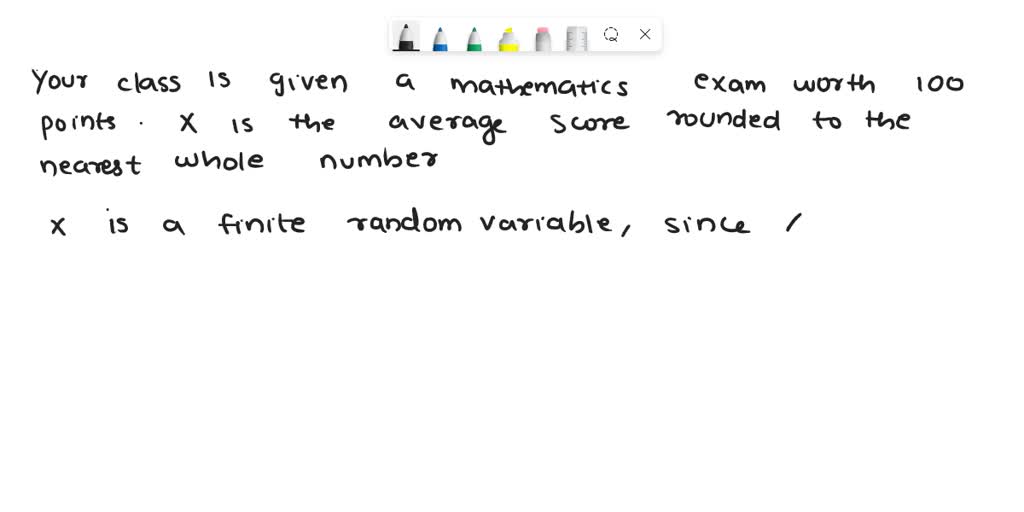 Your class is given a mathematics exam worth 100
points. X is the average score rounded to the
nearest whole number
x is a finite random variable, since